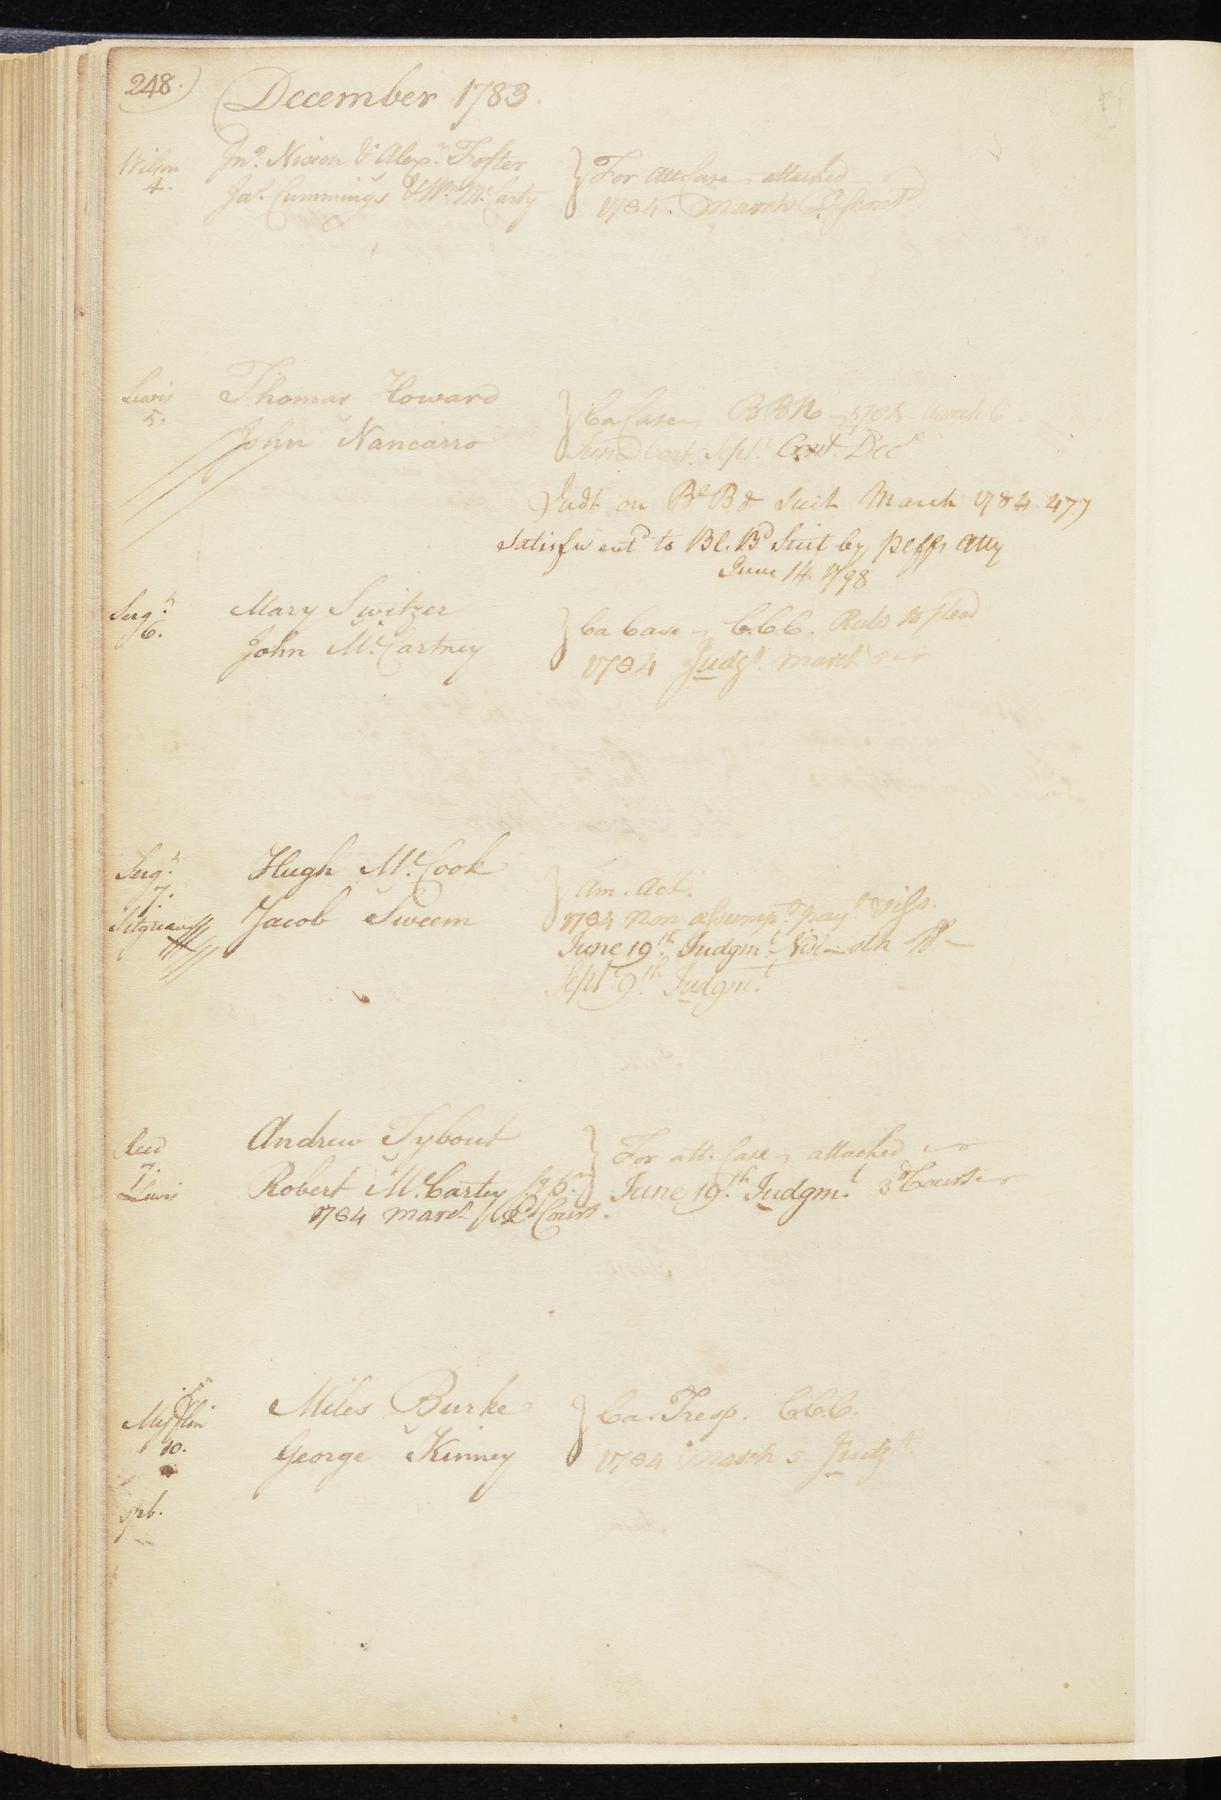 248. December 1783.
Wilson Jno. Nixon & Alexr. Foster } For att Case attached
4. Jas. Cummings & Wm. McCarty 1784. March Discontd.
Lewis Thomas Howard } Ca Case BBN
5. John Nancarro Sept. Cont. Decr
Judt on Bl Bd Suit March 1784. 477
Satisfn entd to Bl. Bd Suit by plffs atty
June 14. 1798
Serjt. Mary Switzer } Ca Case C.C.C. Rule to plead
6. John McCartney 1784 Judgt. March
Serjt. Hugh McCook } Am. Act.
7. 1784 non assumpt. payt. & issue
Sitgreaves Jacob Sweem
June 19th. Judgmt. Nisi
Sept. 9th. Judgmt.
Reed Andrew Tybout } For att. Case attached
7.
Lewis Robert McCarty June 19th. Judgmt. 3d Court
1784 March 2d Court.
Mifflin Miles Burke } Ca. Tresp. C.C.C.
10. George Kinney 1784 March 5 Judgt.